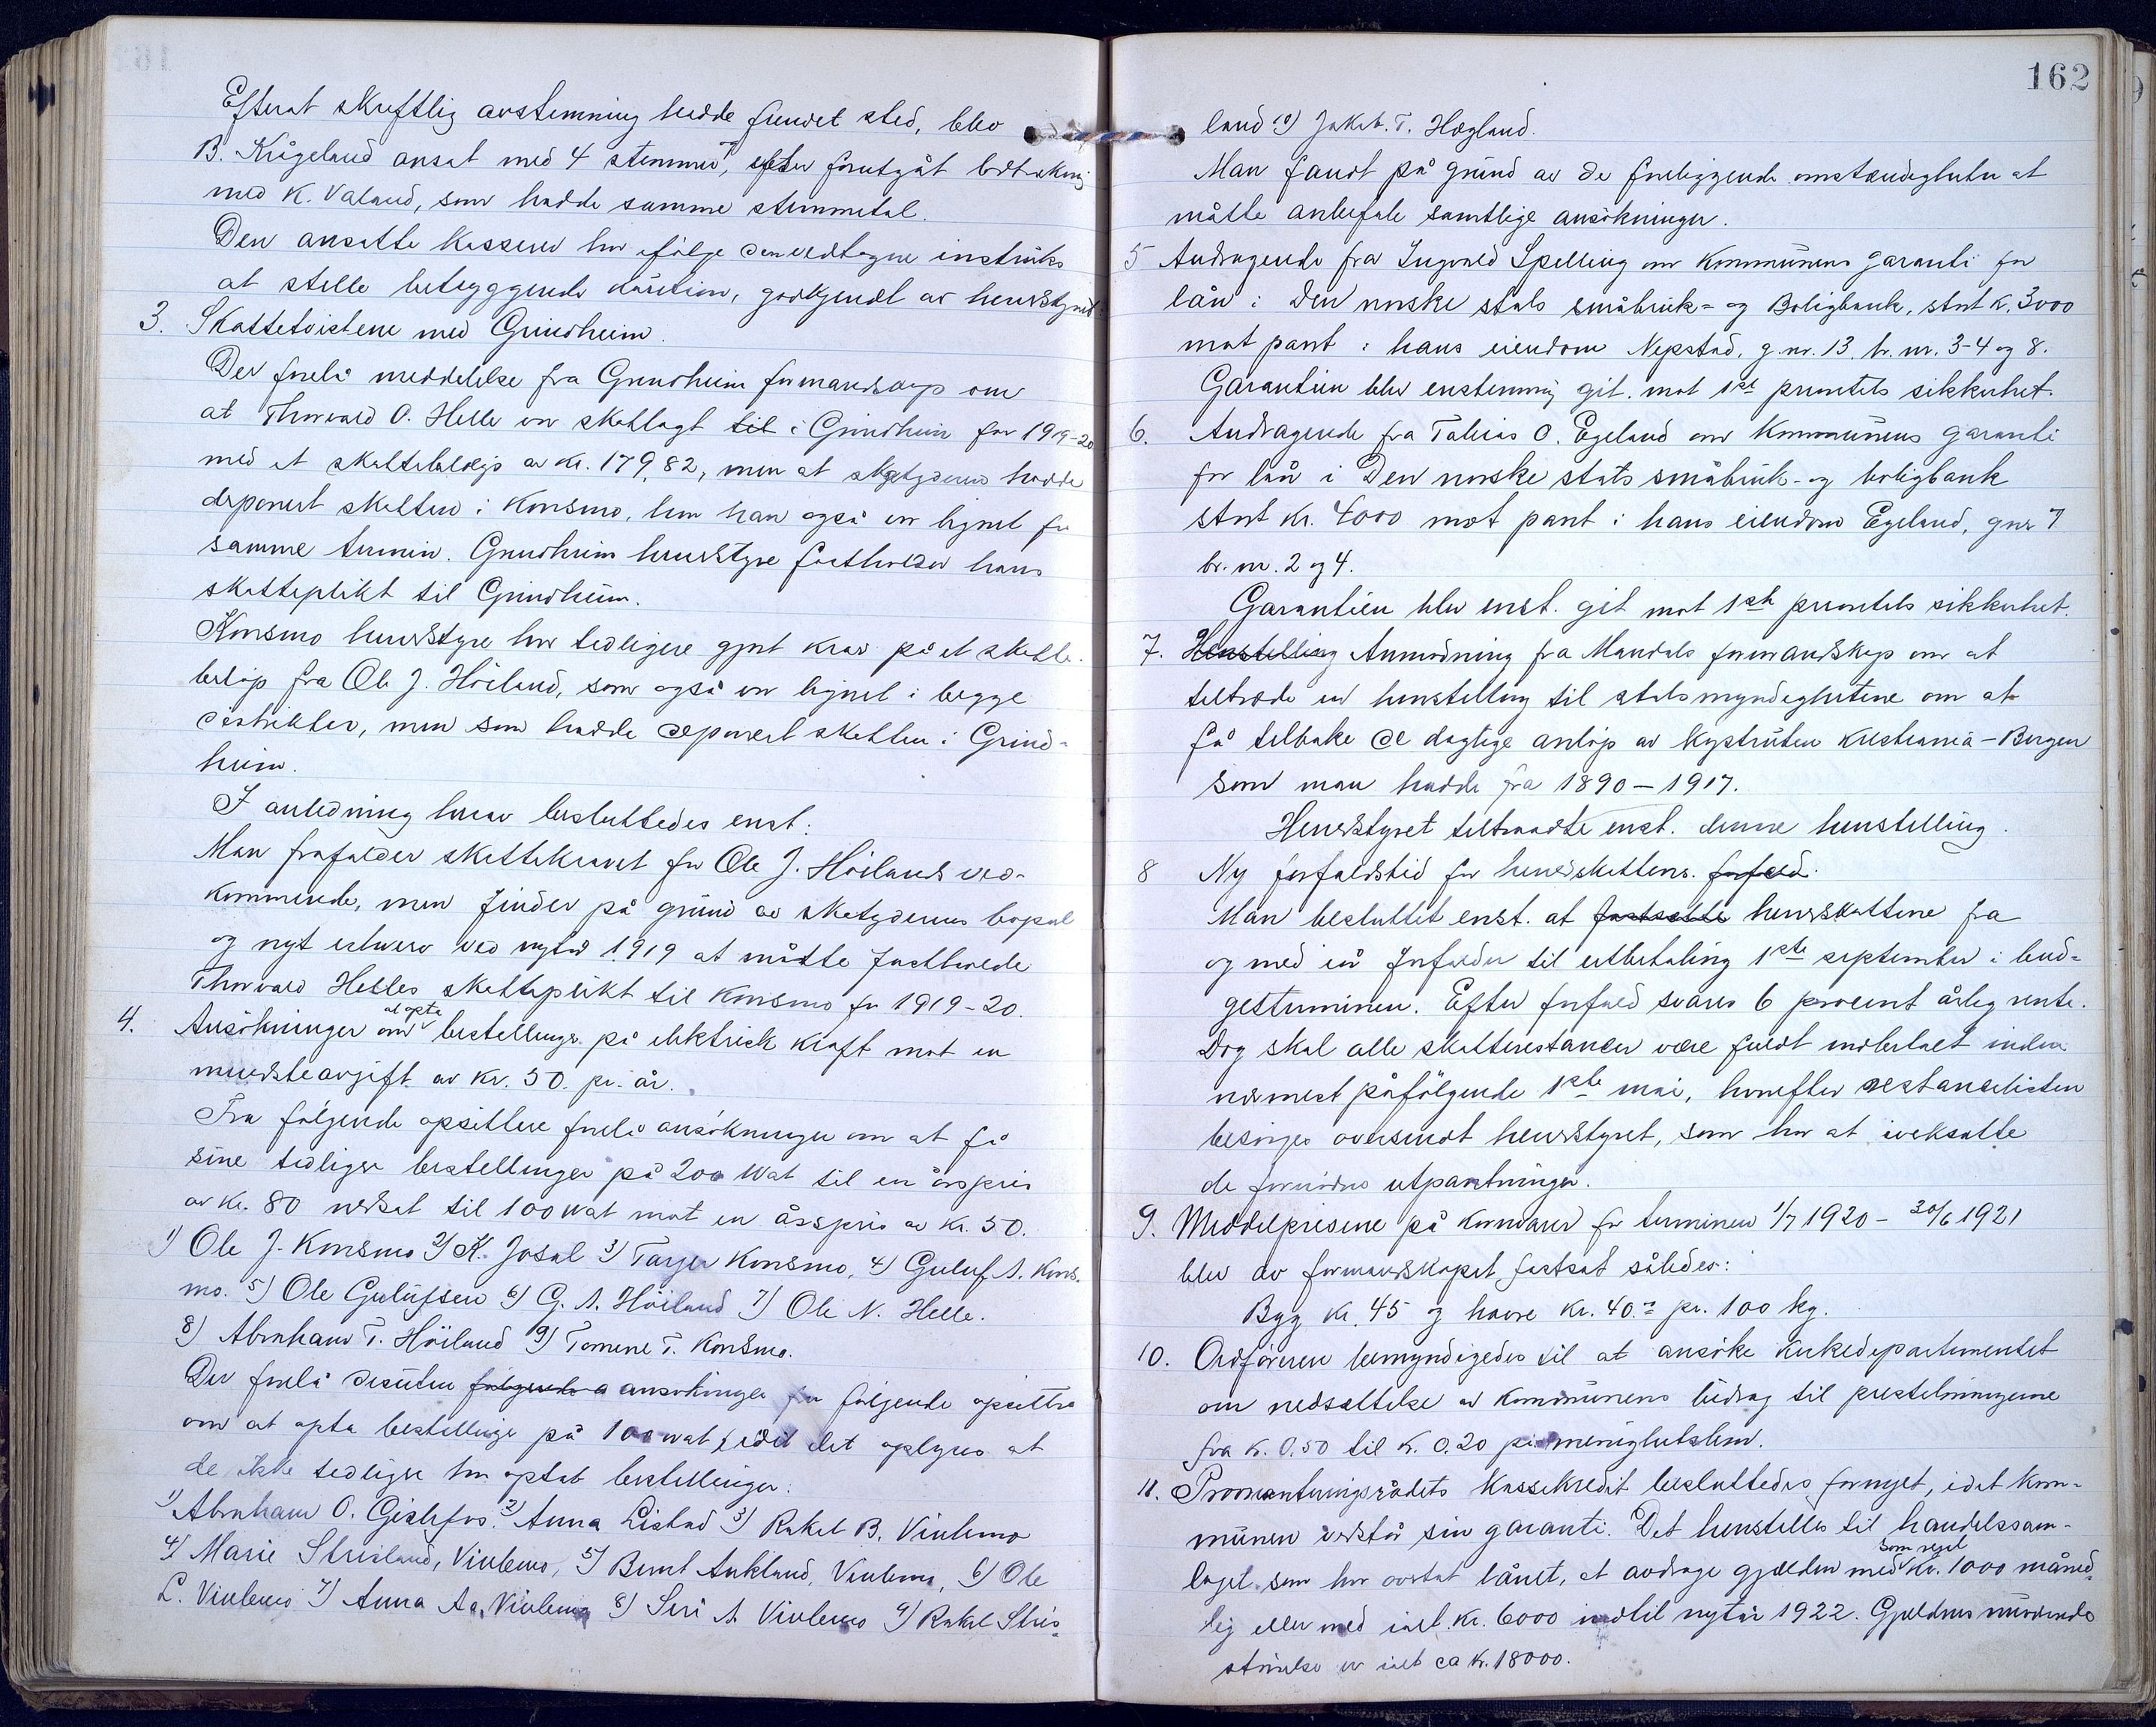 Efterat skriftlig avstemning hadde fundet sted, blev
B. Krågeland ansat med 4 stemmer, efter forutgåt lodtrekning
med K. Valand, som hadde samme stemmetal.
Den ansatte kasserer har ifølge den vedtagne instruks
at stille betryggende kaution, godkjendt av herredstyret.
3. Skattetvistene med Grindheim.
Der forelå meddelelse fra Grindheim formandskap om
at Thorvald O. Helle var skatlagt til i Grindheim for 1919-20
med et skattebeløp av kr. 179,82, men at skatyderen hadde
deponert skatten i Konsmo, hvor han også er lignet for
samme termin. Grindheim herredstyre fastholder hans
skatteplikt til Grindheim.
Konsmo herredstyre har tidligere gjort krav på et skatte-
beløp fra Ole J. Höiland, som også er lignet i begge
distrikter, men som hadde deponert skatten i Grind-
heim.
I anledning herav besluttedes enst:
Man frafalder skattekravet for Ole J. Höilands ved-
kommende, men finder på grund av skatyderens bopæl
og nyt erhverv ved nytår 1919 at måtte fastholde
Thorvald Helles skatteplikt til Konsmo for 1919-20.
4. Ansökninger om at opta bestillinger på elektrisk kraft mot en
mindsteavgift av kr. 50. pr. år.
Fra følgende opsittere forelå ansökninger om at få
sine tidligere bestillinger på 200 Wat til en årspris
av kr. 80 nedsat til 100 wat mot en årspris av kr. 50.
1) Ole J. Konsmo 2) K. Josal 3) Tarjer Konsmo, 4) Guluf A. Kons-
mo. 5) Ole Gulufsen 6) G. A. Höiland 7) Ole N. Helle.
8) Abraham T. Höiland 9) Tomine T. Konsmo.
Der forelå desuten følgende a ansökninger fra følgende opsittere
om at opta bestillinger på 100 wat, idet det oplyses at
de ikke tidligere har optat bestillinger.
1) Abraham O. Gislefos. 2) Anna Listad 3) Rakel B. Viulemo
4) Marie Strisland, Viulemo, 5) Bernt Aukland, Viulemo, 6) Ole
L. Viulemo 7) Anna Aa. Viulemo 8) Siri A Viulemo 9) Rakel Stris-
162
land 10) Jakob. T. Høgland.
Man fandt på grund av de foreliggende omstændigheter at
måtte anbefale samtlige ansökninger.
5 Andragende fra Ingvald Spelling om kommunens garanti for
lån i Den norske stats småbruk- og Boligbank, stort kr. 3000
mot pant i hans eiendom Nepstad, g.nr. 13. br. nr. 3-4 og 8.
Garantien blev enstemmig git. mot 1ste prioritets sikkerhet.
6. Andragende fra Tobias O. Egeland om kommunens garanti
for lån i Den norske stats småbruk- og boligbank
stort kr. 4000 mot pant i hans eiendom Egeland, gnr 7
br. nr. 2 og 4.
Garantien blev enst. git mot 1ste prioritets sikkerhet.
7. Henstilling Anmodning fra Mandals formandskap om at
tiltræde en henstilling til statsmyndighetene om at
få tilbake de daglige anløp av kystruten Kristiania - Bergen
som man hadde fra 1890 - 1917.
Herredstyret tiltraadte enst. denne henstilling.
8 Ny forfaldstid for herredskattene. forfald.
Man besluttet enst. at fastsette herredskattene fra
og med iår forfalder til utbetaling 1ste september i bud-
gettterminen. Efter forfald svares 6 procent årlig rente.
Dog skal alle skatterestancer være fuldt indbetalt inden
nærmest påfølgende 1ste mai, hvorefter restancelisten
besørges oversendt herredstyret, som har at iverksætte
de fornødne utpantninger.
9. Middelprisene på kornvarer for terminen 1/7 1920 - 30/6 1921
blev av formandskapet fastsat således:
Byg kr. 45 og havre kr. 40.- pr. 100 kg.
10. Ordføreren bemyndigedes til at ansöke kirkedepartementet
om nedsættelse av kommunens bidrag til prestelønningene
fra kr. 0.50 til kr. 0.20 pr. menighetslem.
11. Provianteringsrådets kassekredit besluttedes fornyet, idet kom-
munen vedstår sin garanti. Det henstilles til handelssam-
laget som har overtat lånet, at avdrage gjælden med som regel kr. 1000 måned-
lig eller med ialt kr. 6000 indtil nytår 1922. Gjældens nuværende
størrelse er ialt ca kr. 18000.